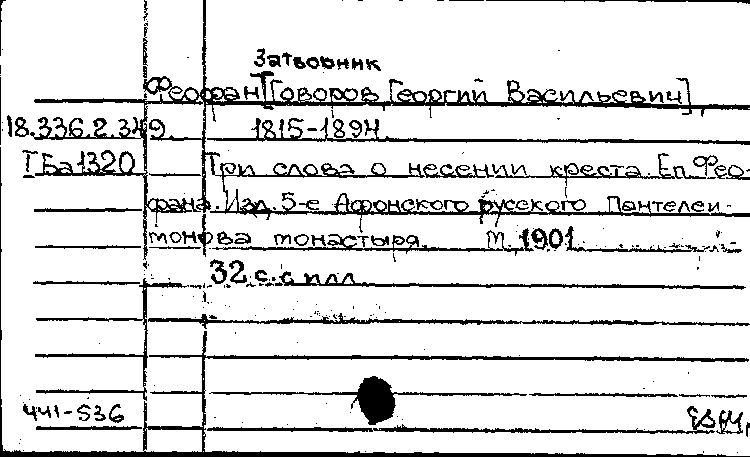 Затворник
Феофан [Говоров, Георгий Васильевич],
18.336.2.349. 1815-1894.
ТБа1320 Три слова о несении креста. Еп. Фео-
фана. Изд. 5-е Афонского русского Пантелеи-
монова монастыря. М. 1901.
32 с. с илл.
441-536